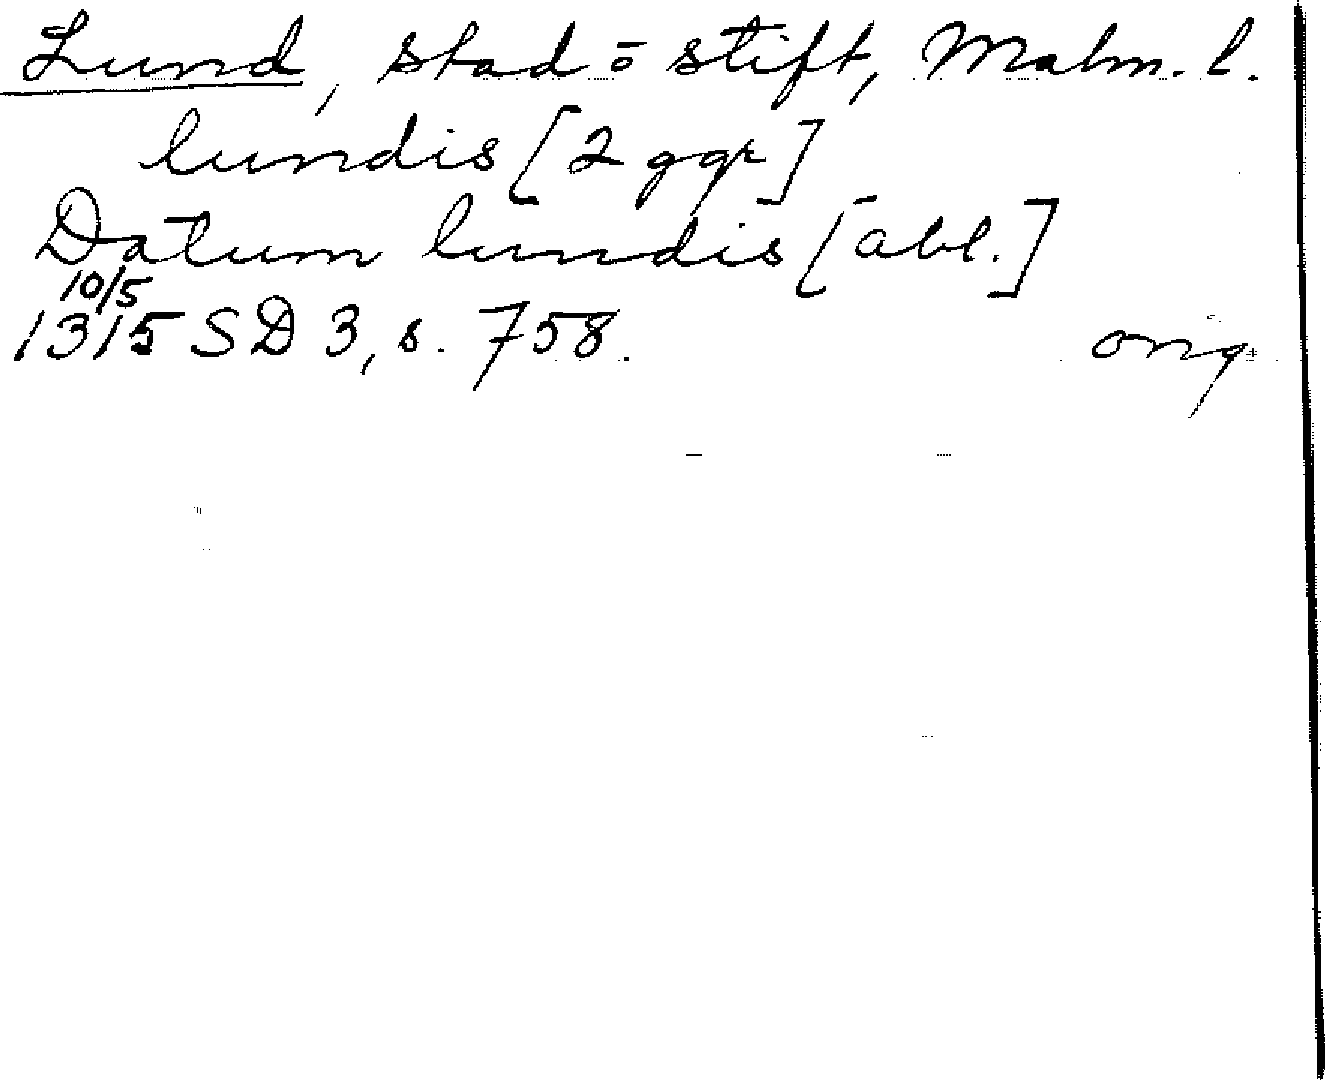 Lund, stad o stift, Malm. l.
lundis [2 ggr]
Datum lundis [abl.]
10/5
1315 SD 3, s. 758.
orig